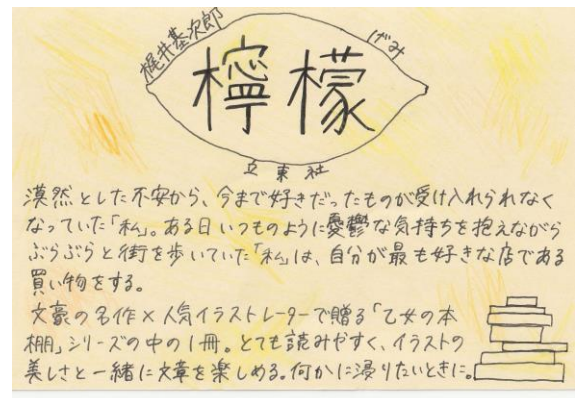 梶井基次郎
げみ
檸檬
立東社
漠然とした不安から、今まで好きだったものが受け入れられなく
なっていた「私」。ある日いつものように憂鬱な気持ちを抱えながら
ぶらぶらと街を歩いていた「私」は、自分が最も好きな店である
買い物をする。
文豪の名作×人気イラストレーターで贈る「乙女の本
棚」シリーズの中の1冊。とても読みやすく、イラストの
美しさと一緒に文章を楽しめる。何かに浸りたいときに。